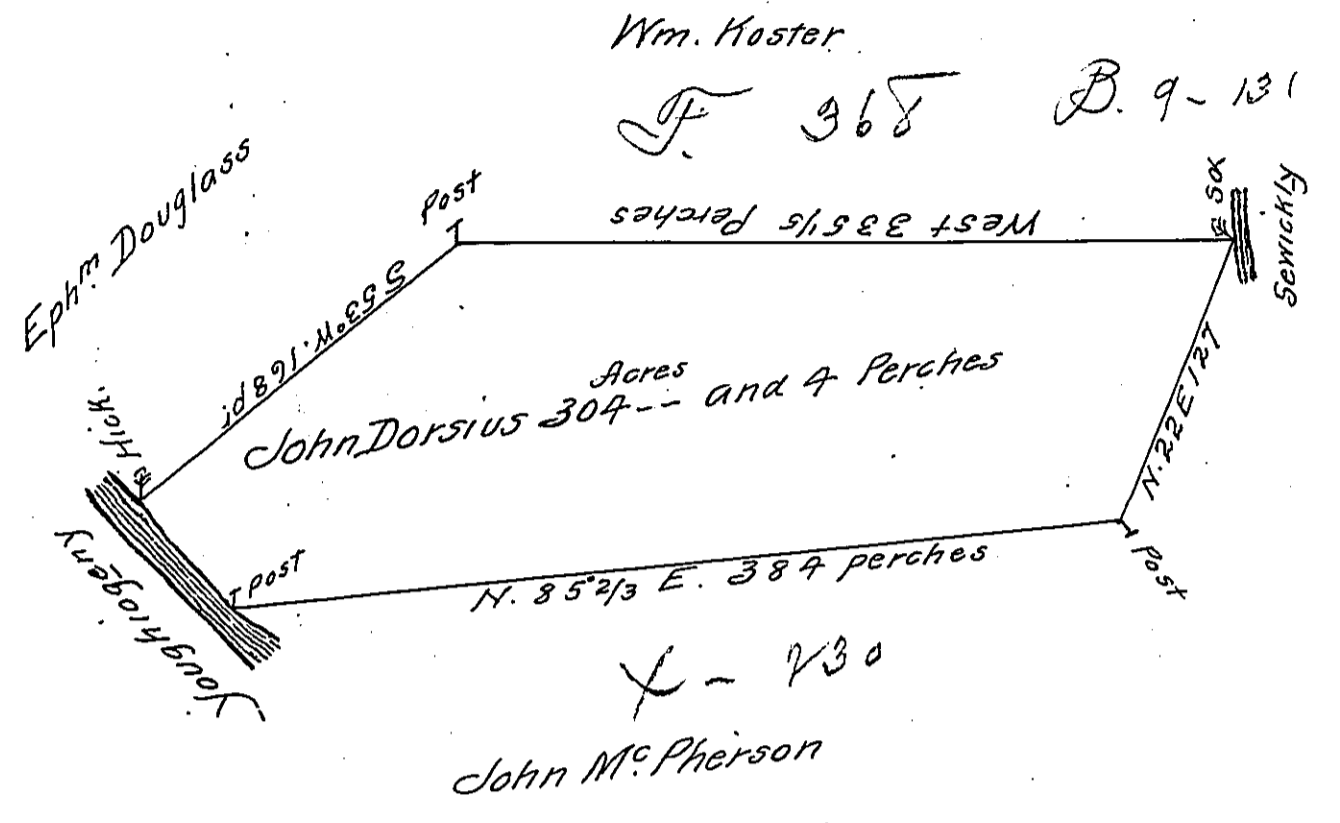 Wm. Koster
F. 368 B. 9-131
Ephm. Douglass
Post
West 335 1/5 Perches
So
Sewickly
S 53° W. 168 p;
Hick.
Acres
John Dorsius 304 -- and 4 Perches
N. 22 E 127
Youghiogeny
post
N. 85° 2/3 E. 384 perches
Post
X - 230
John McPherson